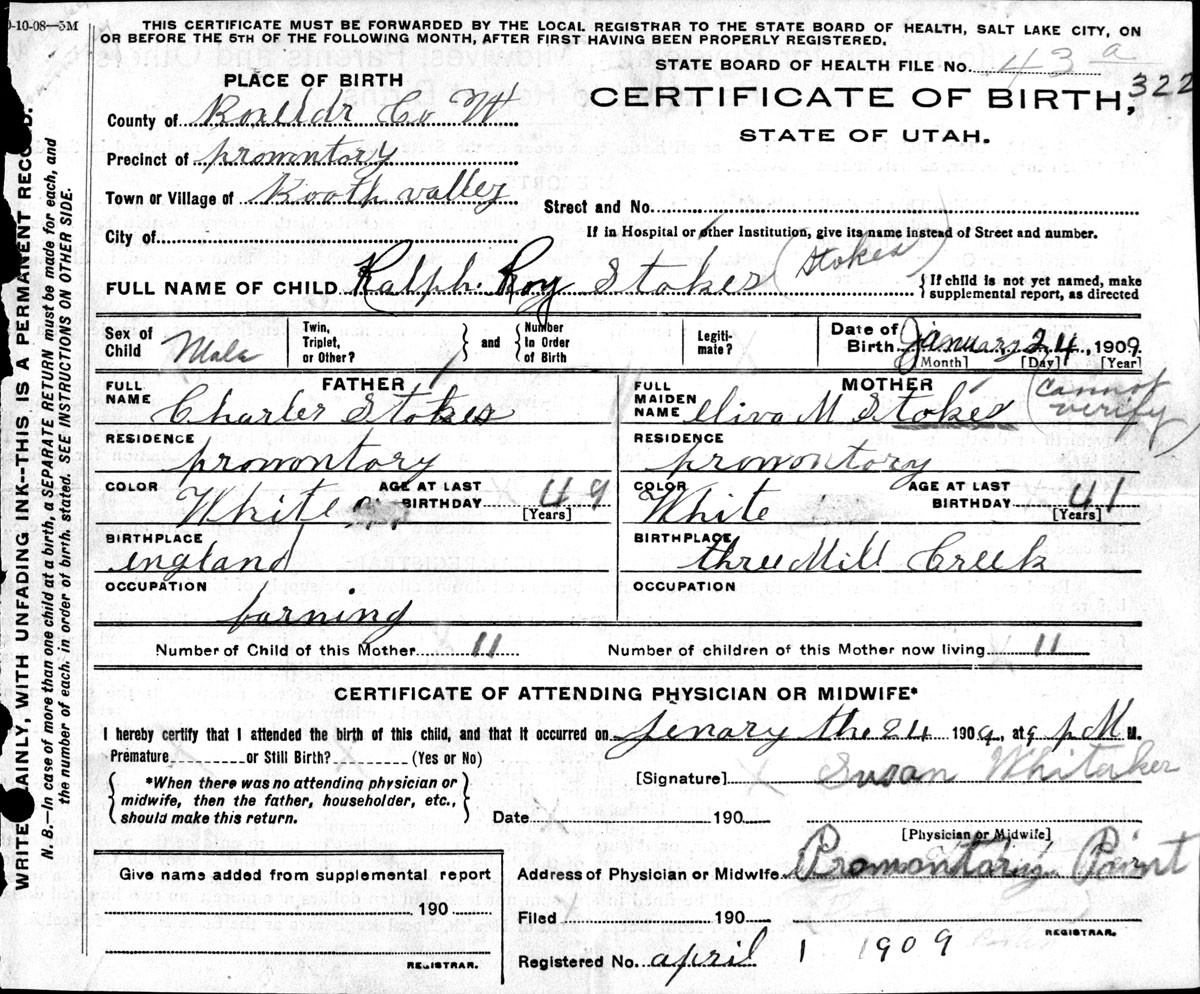 0-10-08—5M
THIS CERTIFICATE MUST BE FORWARDED BY THE LOCAL REGISTRAR TO THE STATE BOARD OF HEALTH, SALT LAKE CITY, ON
OR BEFORE THE 5TH OF THE FOLLOWING MONTH, AFTER FIRST HAVING BEEN PROPERLY REGISTERED.
STATE BOARD OF HEALTH FILE No. 43 a
322
PLACE OF BIRTH
CERTIFICATE OF BIRTH,
STATE OF UTAH.
County of
Precinct of promontory
Town or Village of valley
Street and No.
City of
If in Hospital or other Institution, give its name instead of Street and number.
FULL NAME OF CHILD Ralph Roy Stokes (Stokes)
{If child is not yet named, make
supplemental report, as directed
Sex of Child Mala
Twin, Triplet, or Other? } and { Number In Order of Birth
Legiti-mate?
Date of Birth January 24, 1909
[Month] [Day] [Year]
FATHER
FULL NAME Charles Stokes
RESIDENCE promontory
COLOR White AGE AT LAST BIRTHDAY 49
[Years]
BIRTHPLACE england
OCCUPATION farning
MOTHER
FULL MAIDEN NAME eliva M Stokes (cannot verify)
RESIDENCE promontory
COLOR White AGE AT LAST BIRTHDAY 41
[Years]
BIRTHPLACE three Mill Creek
OCCUPATION
Number of Child of this Mother 11
Number of children of this Mother now living 11
CERTIFICATE OF ATTENDING PHYSICIAN OR MIDWIFE*
I hereby certify that I attended the birth of this child, and that it occurred on jenary the 24 1909, at 9 p M M.
Premature or Still Birth? (Yes or No)
{ *When there was no attending physician or
midwife, then the father, householder, etc.,
should make this return. }
[Signature] Susan Whitaker
Date 190
[Physician or Midwife]
Address of Physician or Midwife Promontory Point
Give name added from supplemental report
190
REGISTRAR.
Filed 190
REGISTRAR.
Registered No. april 1 1909
WRITE PLAINLY, WITH UNFADING INK--THIS IS A PERMANENT RECORD.
N. B.—In case of more than one child at a birth, a SEPARATE RETURN must be made for each, and
the number of each. in order of birth. stated. SEE INSTRUCTIONS ON OTHER SIDE.